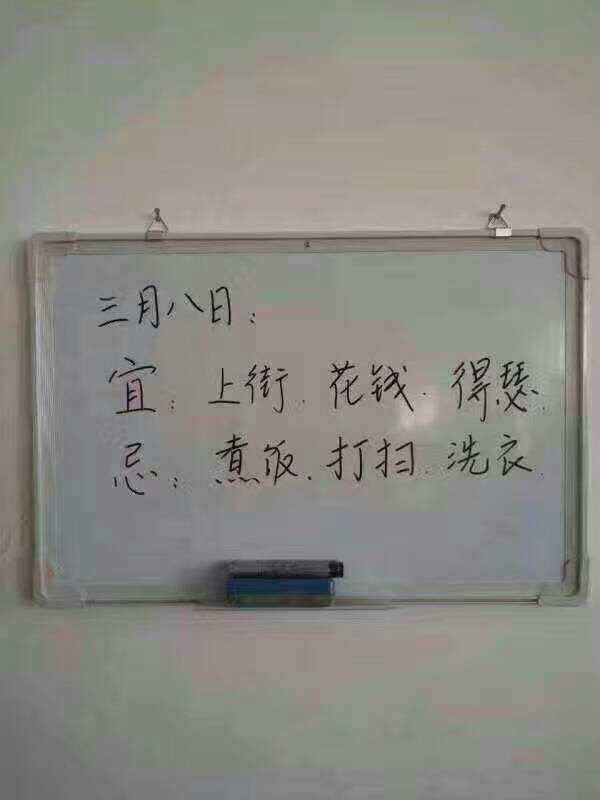 三月八日：
宜：上街．花钱．得瑟．
忌：煮饭．打扫．洗衣．